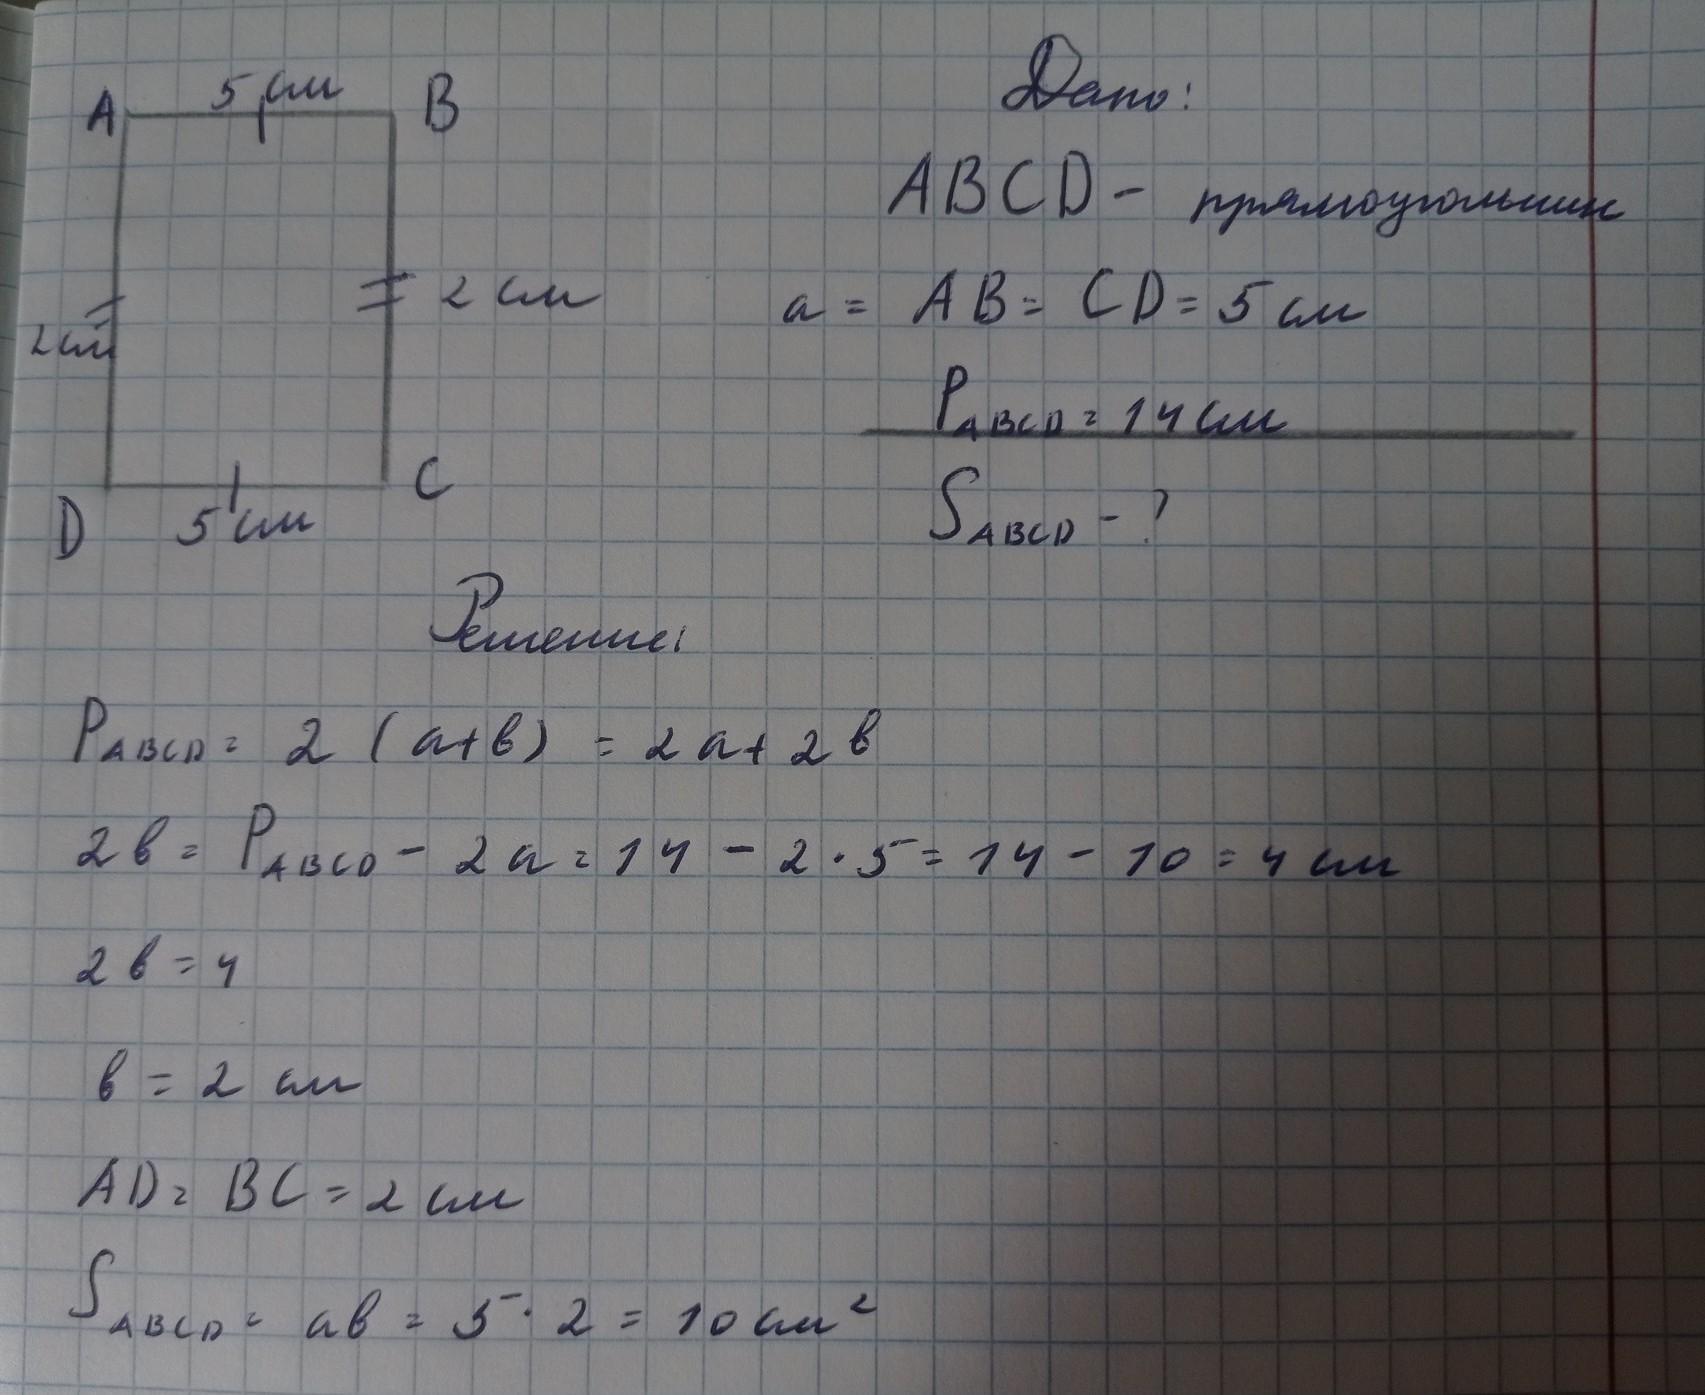 A 5 см B
2 см
2 см
D 5 см C
Дано:
ABCD - прямоугольник
a = AB = CD = 5 см
P ABCD = 14 см
S ABCD - ?
Решение:
P ABCD = 2 (a+b) = 2a + 2b
2b = P ABCD - 2a = 14 - 2 · 5 = 14 - 10 = 4 см
2b = 4
b = 2 см
AD = BC = 2 см
S ABCD = ab = 5 · 2 = 10 см²